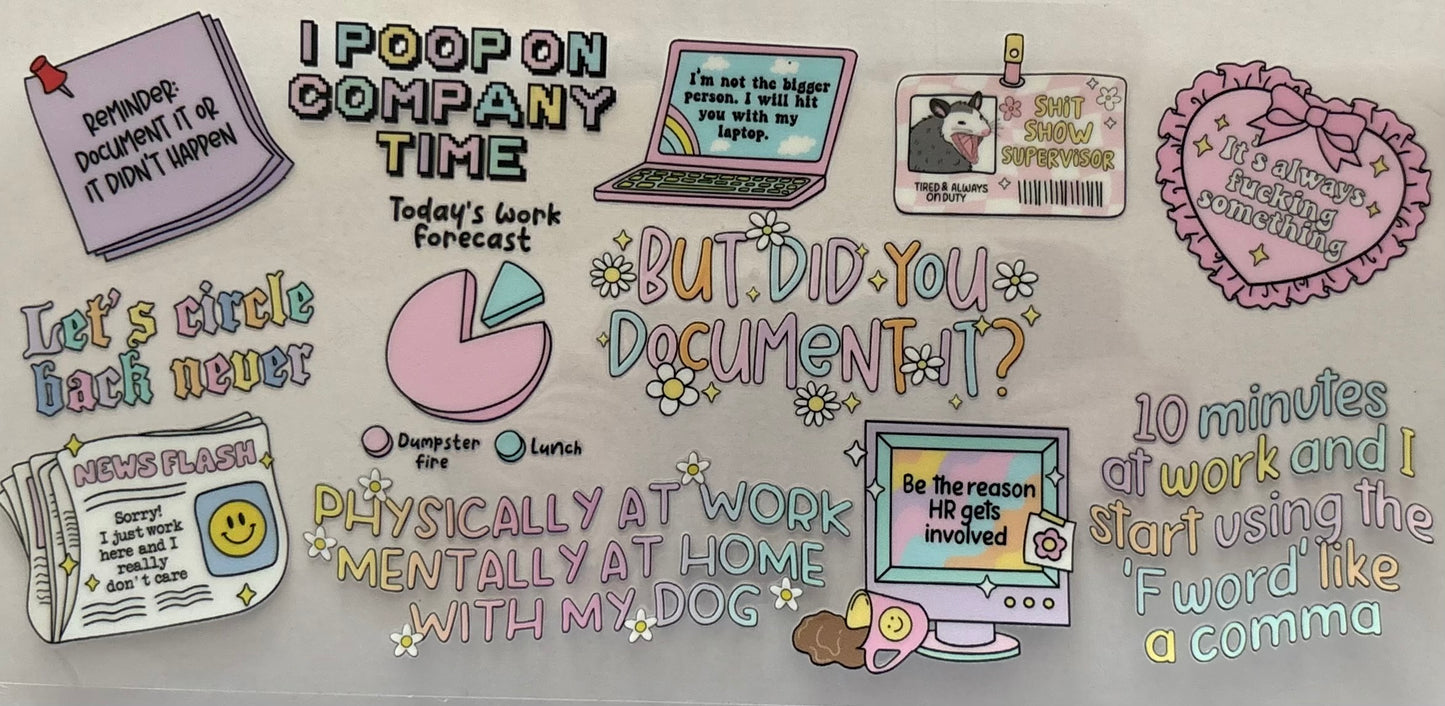 REMINDER:
DOCUMENT IT OR
IT DIDN'T HAPPEN
I POOP ON
COMPANY
TIME
I'm not the bigger
person. I will hit
you with my
laptop.
SHIT
SHOW
SUPERVISOR
TIRED & ALWAYS
ON DUTY
It's always
fucking
something
Let's circle
back never
Today's work
forecast
Dumpster
fire
Lunch
BUT DID YOU
DOCUMENT IT?
NEWS FLASH
Sorry!
I just work
here and I
really
don't care
PHYSICALLY AT WORK
MENTALLY AT HOME
WITH MY DOG
Be the reason
HR gets
involved
10 minutes
at work and I
start using the
'F word' like
a comma